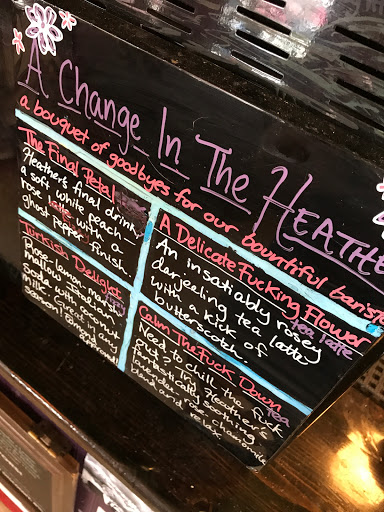 A Change In The HEATHE
a bouquet of goodbyes for our bountiful bariste
The Final Petal
Heather's final drink,
a soft white peach
rose latte with a
ghost pepper finish.
A Delicate Fucking Flower
tea latte
An insatiably rosey
darjeeling tea latte
with a kick of
butterscotch.
Turkish Delight
Rose-lemon-marsh
mallow
soda with coconut
milk
and
almond
Calm The Fuck Down
tea
Need to chill the fuck
out? Try Heather's
fantastically soothing
lavender, chamomile
and rose
relax